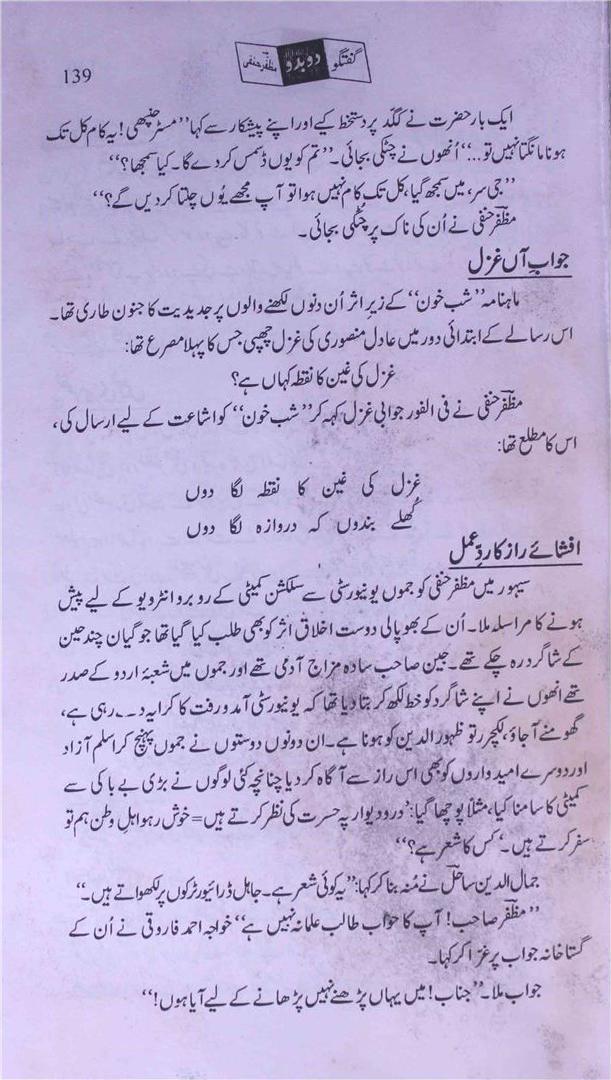 139
گفتگو دوبدو مظفر حنفی
ایک بار حضرت نے کگد پر دستخط کیے اور اپنے پیشکار سے کہا ’’مسٹر حنپھی! یہ کام کل تک
ہونا مانگتا نہیں تو...‘‘ اُنھوں نے چٹکی بجائی۔ ’’تم کو یوں ڈسمس کر دے گا۔ کیا سمجھا؟‘‘
’’جی سر، میں سمجھ گیا، کل تک کام نہیں ہوا تو آپ مجھے یُوں چلتا کر دیں گے؟‘‘
مظفر حنفی نے اُن کی ناک پر چُٹکی بجائی۔
جوابِ آں غزل
ماہنامہ ’’شب خون‘‘ کے زیرِ اثر اُن دنوں لکھنے والوں پر جدیدیت کا جنون طاری تھا۔
اس رسالے کے ابتدائی دور میں عادل منصوری کی غزل چھپی جس کا پہلا مصرع تھا:
غزل کی غین کا نقطہ کہاں ہے؟
مظفر حنفی نے فی الفور جوابی غزل کہہ کر ’’شب خون‘‘ کو اشاعت کے لیے ارسال کی،
اس کا مطلع تھا:
غزل کی غین کا نقطہ لگا دوں
کُھلے بندوں کہ دروازہ لگا دوں
افشائے راز کا ردِّ عمل
سیہور میں مظفر حنفی کو جموں یونیورسٹی سے سلکشن کمیٹی کے روبرو انٹرویو کے لیے پیش
ہونے کا مراسلہ ملا۔ اُن کے بھوپالی دوست اخلاق اثر کو بھی طلب کیا گیا تھا جو گیان چند جین
کے شاگرد رہ چکے تھے۔ جین صاحب سادہ مزاج آدمی تھے اور جموں میں شعبۂ اردو کے صدر
تھے انھوں نے اپنے شاگرد کو خط لکھ کر بتا دیا تھا کہ یونیورسٹی آمد و رفت کا کرایہ دے رہی ہے،
گھومنے آ جاؤ، لکچرر تو ظہور الدین کو ہونا ہے۔ ان دونوں دوستوں نے جموں پہنچ کر اسلم آزاد
اور دوسرے امیدواروں کو بھی اس راز سے آگاہ کر دیا چنانچہ کئی لوگوں نے بڑی بے باکی سے
کمیٹی کا سامنا کیا، مثلاً پوچھا گیا: ’درودیوار پہ حسرت کی نظر کرتے ہیں=خوش رہو اہلِ وطن ہم تو
سفر کرتے ہیں۔‘ کس کا شعر ہے؟‘‘
جمال الدین ساحل نے مُنہ بنا کر کہا: ’’یہ کوئی شعر ہے۔ جاہل ڈرائیور ٹرکوں پر لکھواتے ہیں۔‘‘
’’مظفر صاحب! آپ کا جواب طالب علمانہ نہیں ہے‘‘ خواجہ احمد فاروقی نے اُن کے
گستاخانہ جواب پر غرّا کر کہا۔
جواب ملا۔ ’’جناب! میں یہاں پڑھنے نہیں پڑھانے کے لیے آیا ہوں!‘‘